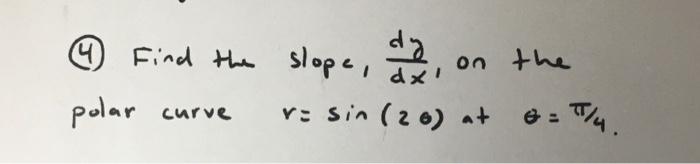 ④ Find the slope, dy/dx, on the
polar curve r = sin(2θ) at θ = π/4.